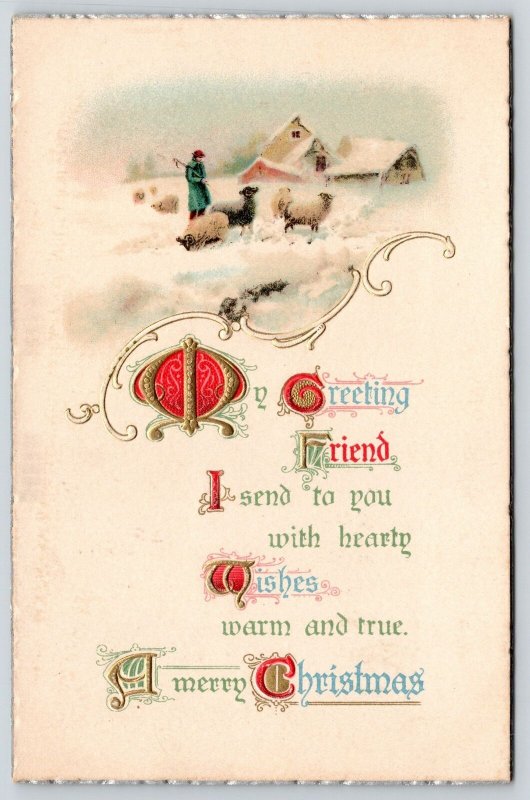 My Greeting
Friend
I send to you
with hearty
Wishes
warm and true.
A merry Christmas